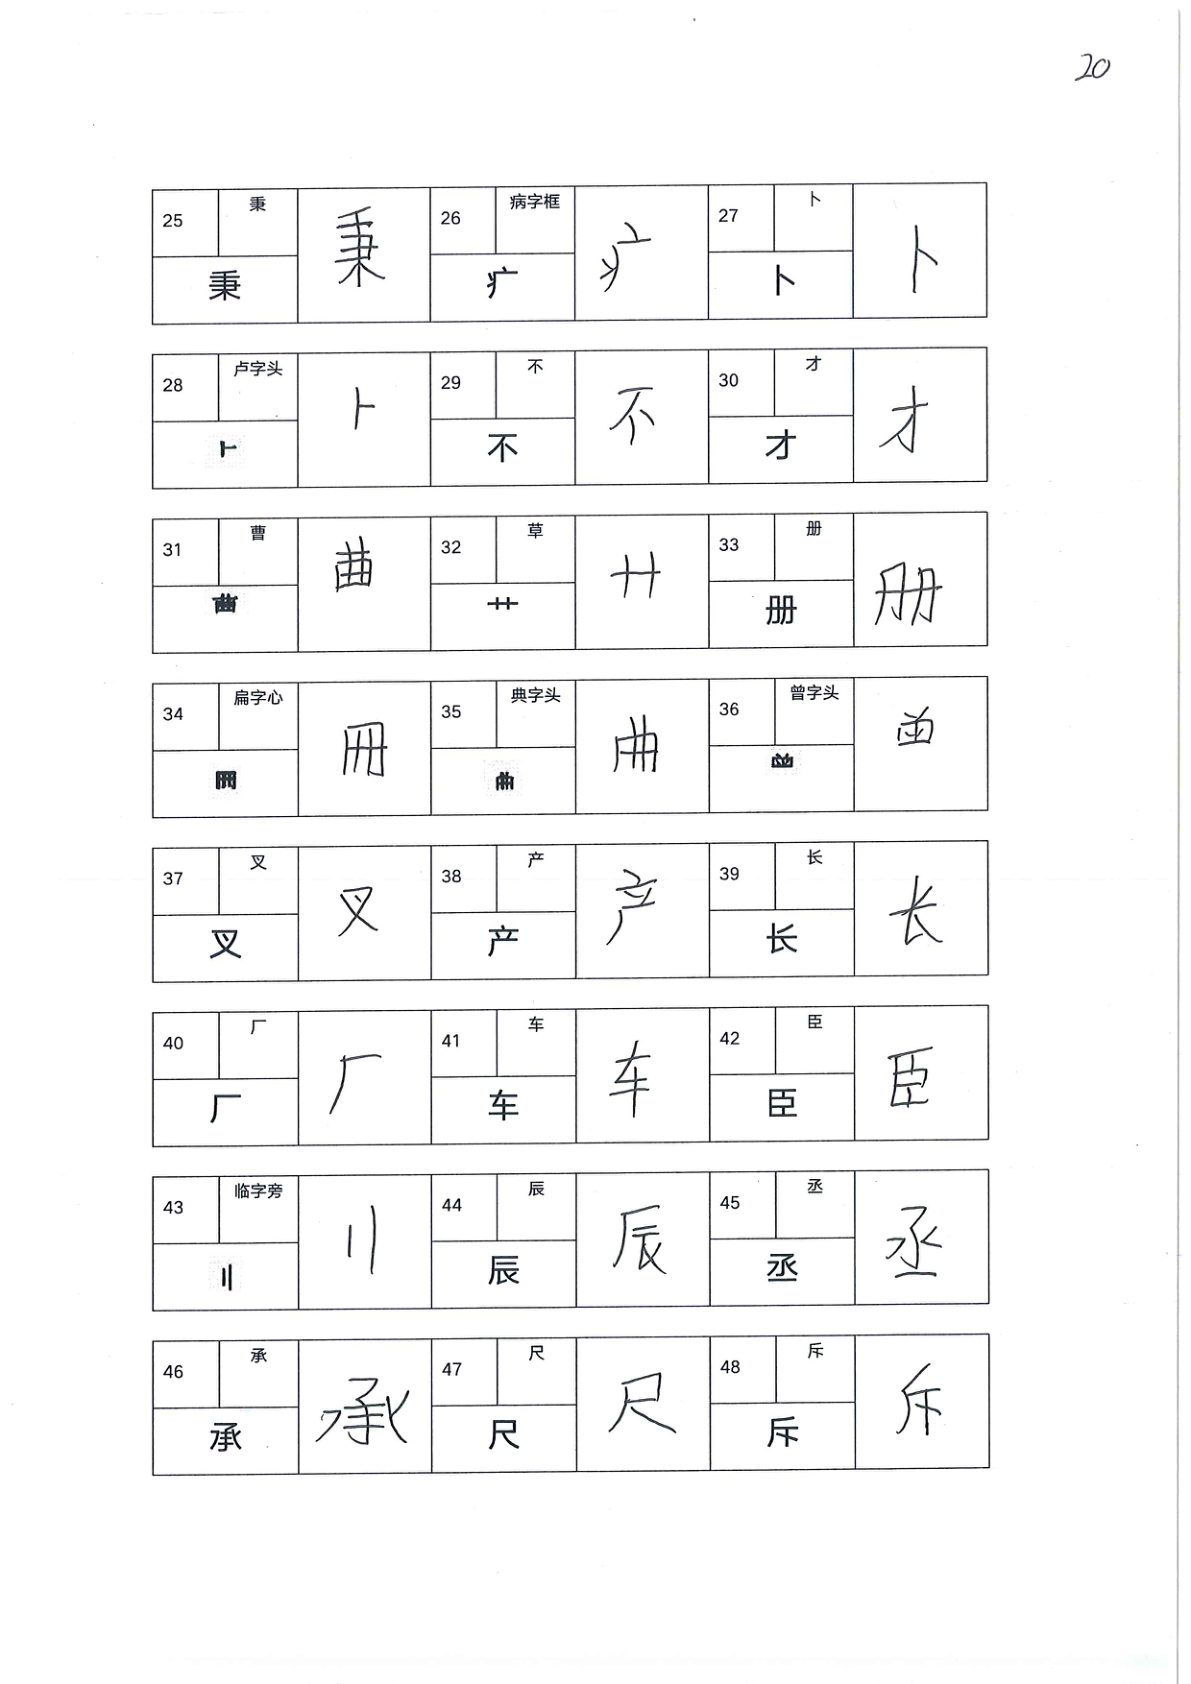 20
25 秉 秉 26 病字框 疒 27 卜 卜
秉 疒 卜
28 卢字头 ⺊ 29 不 不 30 才 才
⺊ 不 才
31 曹 32 草 艹 33 册 册
艹 册
34 扁字心 35 典字头 36 曾字头
37 叉 叉 38 产 产 39 长 长
叉 产 长
40 厂 厂 41 车 车 42 臣 臣
厂 车 臣
43 临字旁 〢 44 辰 辰 45 丞 丞
〢 辰 丞
46 承 承 47 尺 尺 48 斥 斥
承 尺 斥